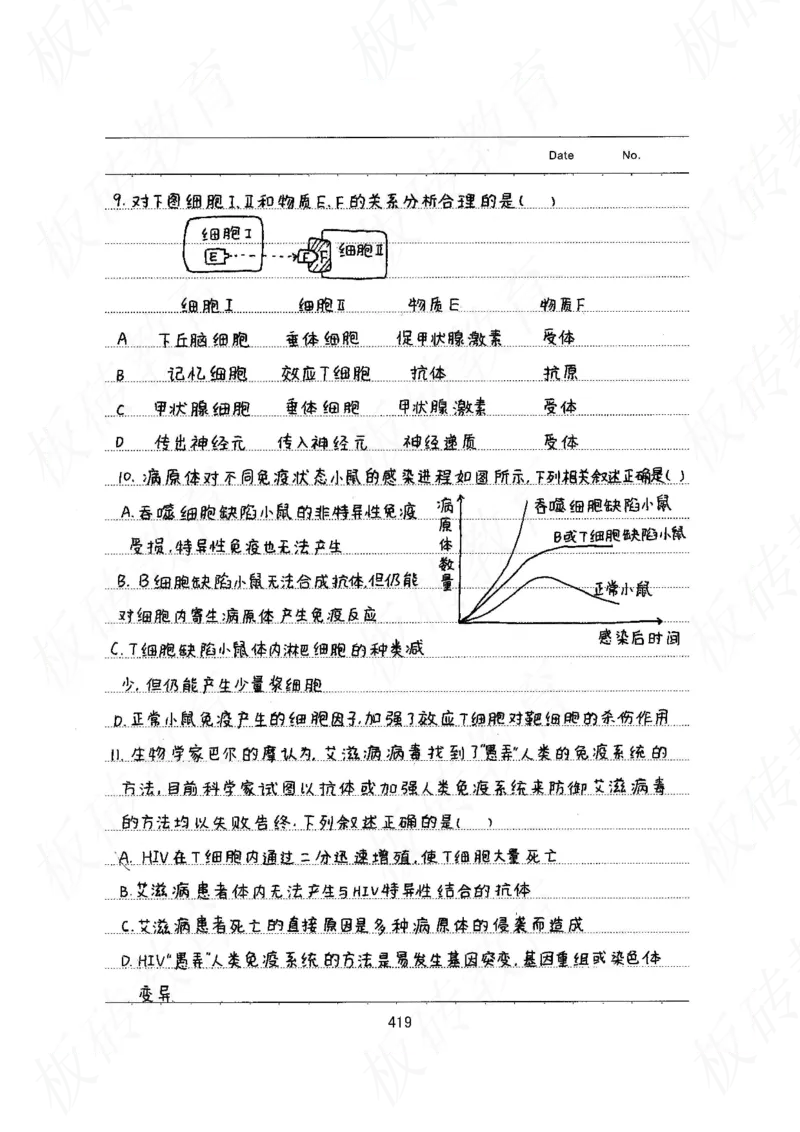 Date No.
9.对下图细胞I、II和物质E、F的关系分析合理的是( )
细胞I
E
E
F
细胞II
细胞I 细胞II 物质E 物质F
A 下丘脑细胞 垂体细胞 促甲状腺激素 受体
B 记忆细胞 效应T细胞 抗体 抗原
C 甲状腺细胞 垂体细胞 甲状腺激素 受体
D 传出神经元 传入神经元 神经递质 受体
10.病原体对不同免疫状态小鼠的感染进程如图所示,下列相关叙述正确是( )
A.吞噬细胞缺陷小鼠的非特异性免疫
受损,特异性免疫也无法产生
B.B细胞缺陷小鼠无法合成抗体,但仍能
对细胞内寄生病原体产生免疫反应
C.T细胞缺陷小鼠体内淋巴细胞的种类减
少,但仍能产生少量浆细胞
病原体数量
吞噬细胞缺陷小鼠
B或T细胞缺陷小鼠
正常小鼠
感染后时间
D.正常小鼠免疫产生的细胞因子,加强了效应T细胞对靶细胞的杀伤作用
11.生物学家巴尔的摩认为,艾滋病病毒找到了"愚弄"人类的免疫系统的
方法,目前科学家试图以抗体或加强人类免疫系统来防御艾滋病毒
的方法均以失败告终.下列叙述正确的是( )
A.HIV在T细胞内通过二分迅速增殖,使T细胞大量死亡
B.艾滋病患者体内无法产生与HIV特异性结合的抗体
C.艾滋病患者死亡的直接原因是多种病原体的侵袭而造成
D.HIV"愚弄"人类免疫系统的方法是易发生基因突变、基因重组或染色体
变异
419
板砖教育